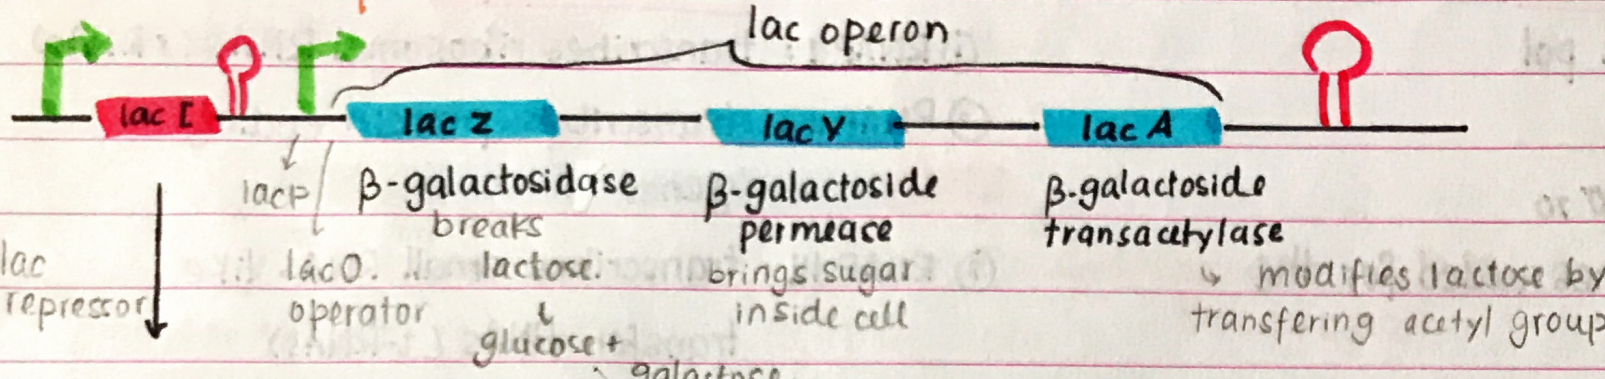 lac operon
lac I
lac Z
lac Y
lac A
lacP
β-galactosidase
breaks
lactose.
glucose +
galactose
β-galactoside
permeace
brings sugar
inside cell
β-galactoside
transacetylase
↳ modifies lactose by
transfering acetyl group
lac
repressor
lacO.
operator